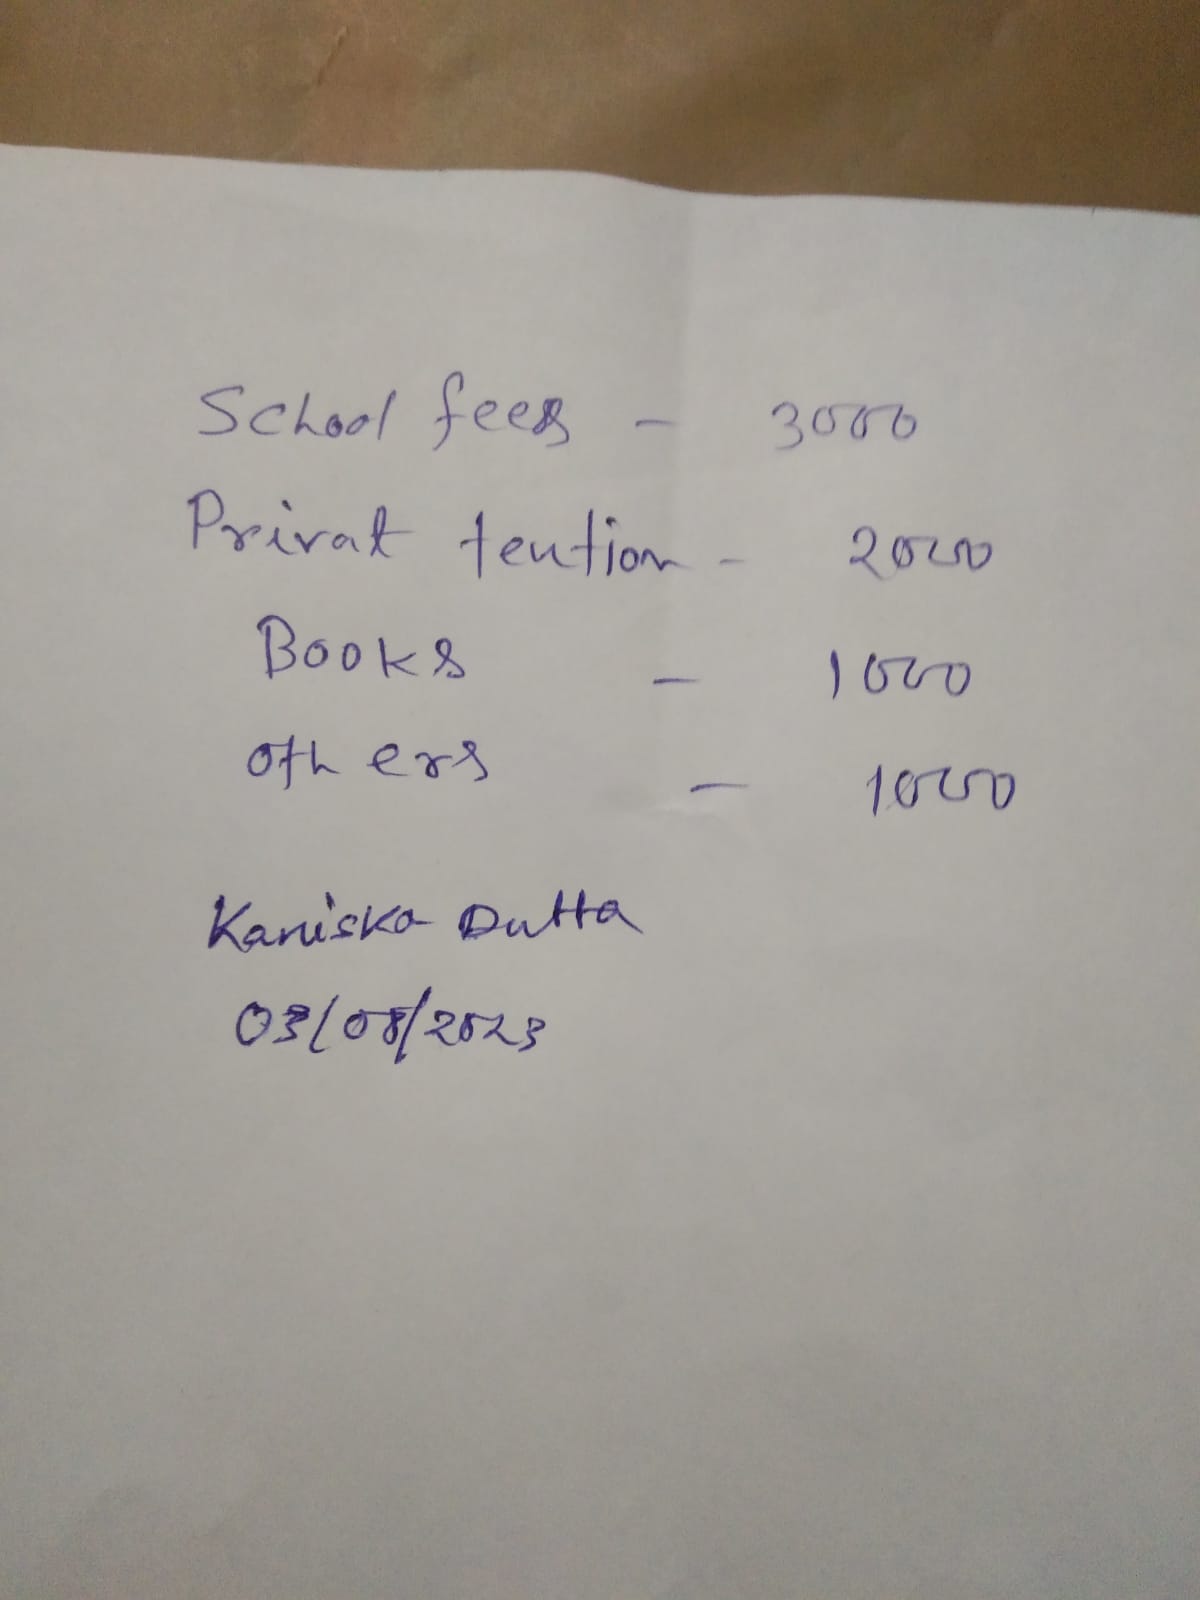 School fees - 3000
Privat teution - 2000
Books - 1000
others - 1000
Kaniska Dutta
03/08/2023